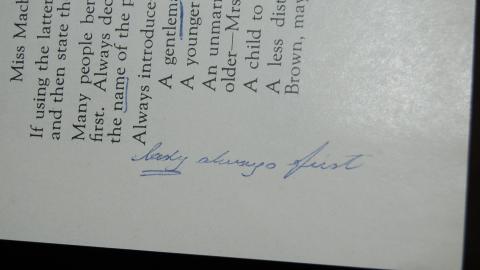 Miss Mach
If using the latter
and then state th
Many people ber
first. Always dec
the name of the p
Always introduce
A gentlema
A younger
An unmarri
older—Mrs
A child to
A less dist
Brown, may
lady always first